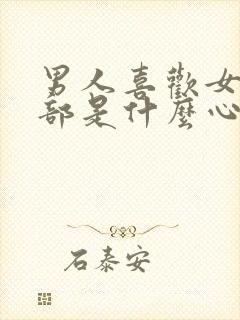 男人喜歡女
部是什麼心
石泰安